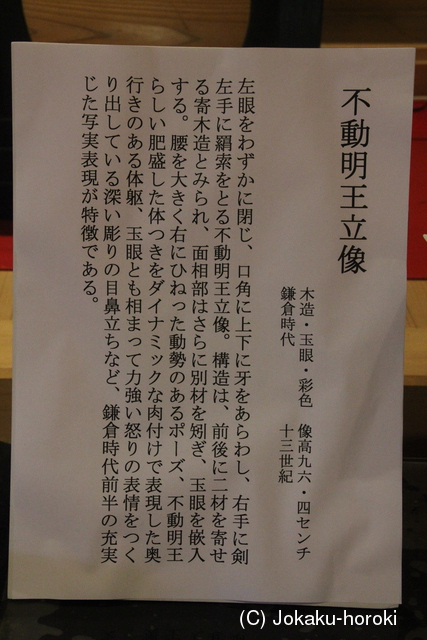 不動明王立像
木造・玉眼・彩色　像高九六・四センチ
鎌倉時代　十三世紀
左眼をわずかに閉じ、口角に上下に牙をあらわし、右手に剣
左手に羂索をとる不動明王立像。構造は、前後に二材を寄せ
る寄木造とみられ、面相部はさらに別材を矧ぎ、玉眼を嵌入
する。腰を大きく右にひねった動勢のあるポーズ、不動明王
らしい肥盛した体つきをダイナミックな肉付けで表現した奥
行きのある体躯、玉眼とも相まって力強い怒りの表情をつく
り出している深い彫りの目鼻立ちなど、鎌倉時代前半の充実
じた写実表現が特徴である。
(C) Jokaku-horoki